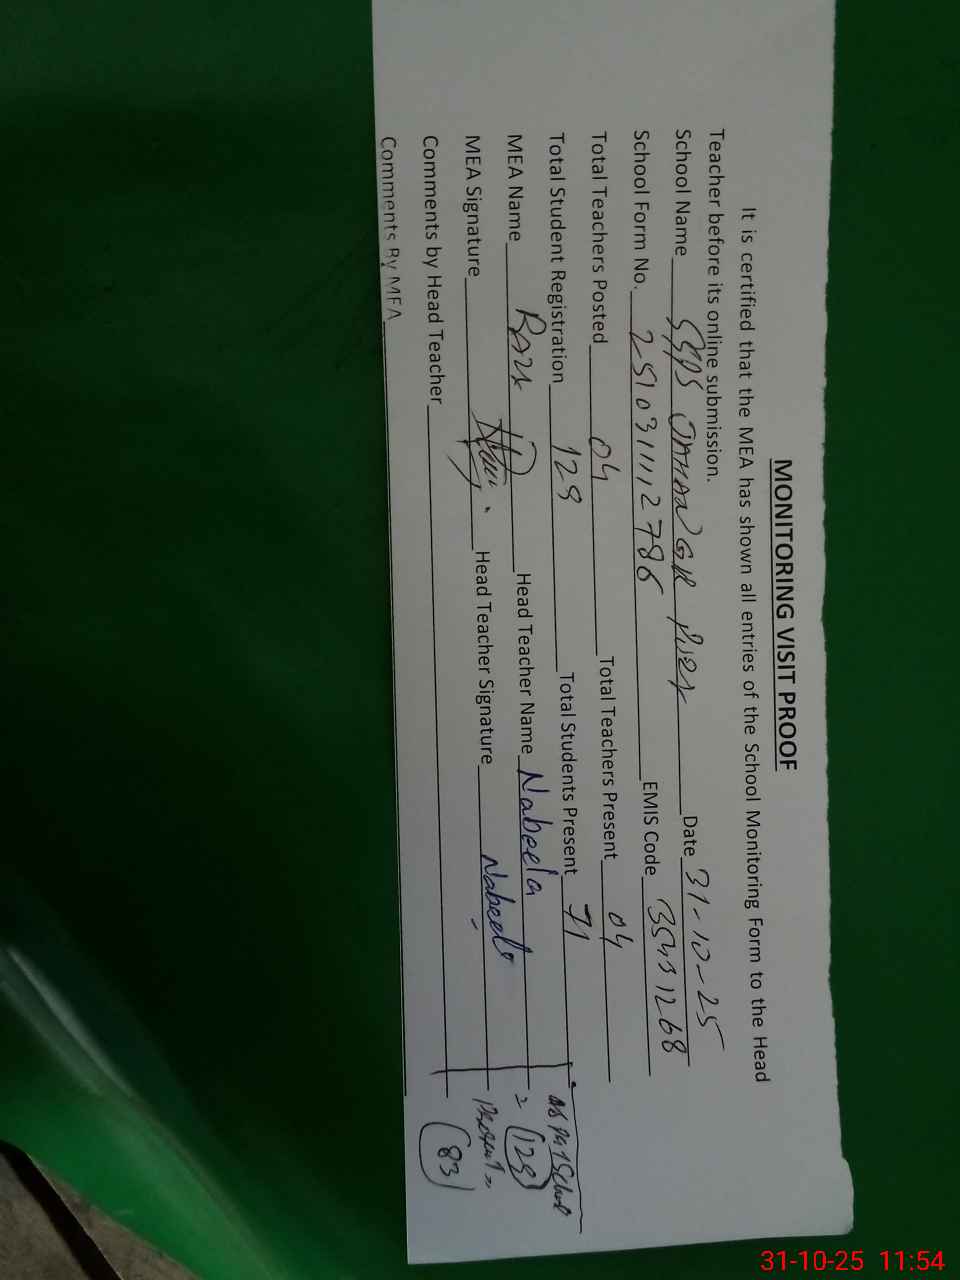 MONITORING VISIT PROOF
It is certified that the MEA has shown all entries of the School Monitoring Form to the Head
Teacher before its online submission.
School Name Date 31-10-25
School Form No. 2510311112786 EMIS Code 35431268
Total Teachers Posted 04 Total Teachers Present 04
Total Student Registration 129 Total Students Present 71
MEA Name Head Teacher Name Nabeela
MEA Signature Head Teacher Signature Nabeela
Comments by Head Teacher
Comments By MEA
= 129
Present =
83
31-10-25 11:54